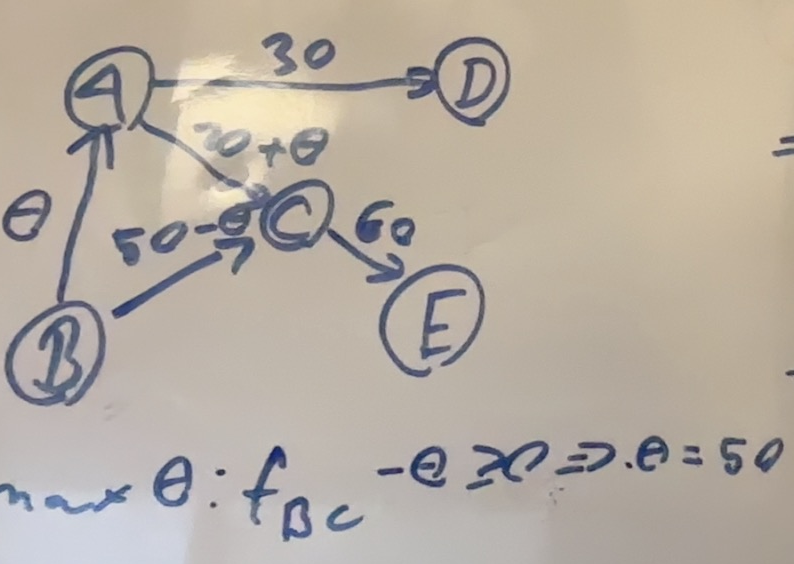 30
A
D
20+θ
θ
50-θ
C
60
B
E
max θ: f_BC -θ ≥ 0 ⇒ θ = 50